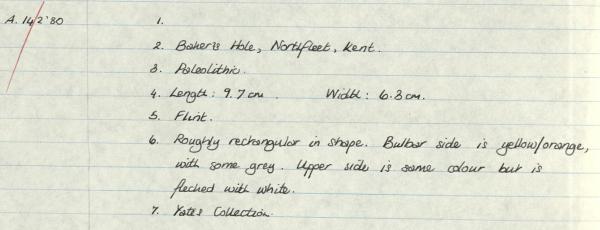 A. 142'80
1.
2. Baker's Hole, Northfleet, Kent.
3. Paleolithic.
4. Length: 9.7cm. Width: 6.3cm.
5. Flint.
6. Roughly rectangular in shape. Bulbar side is yellow/orange,
with some grey. Upper side is same colour but is
flecked with white.
7. Yates Collection.